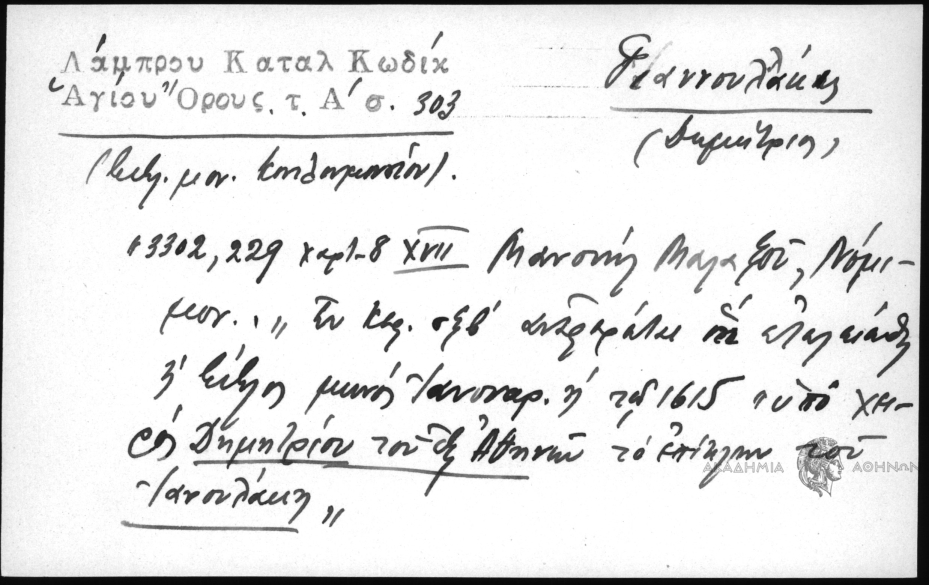 Λάμπρου Καταλ Κωδίκ
Ἁγίου Ὄρους, τ. Α' σ. 303
Γιαννουλάκης
(Δημήτριος)
(Βιβλ. μον. Κουτλουμουσίου).
"3302, 229 χαρτ. 8 XVII Μανουήλ Μαλαξοῦ, Νόμι-
μον. „ Ἐν κερ. σξβ'
ἡ βίβλος μηνὸς Ἰανουαρ. ἡ τοῦ 1615 ὑπὸ χει-
ρὸς Δημητρίου τοῦ ἐξ Ἀθηνῶν τὸ ἐπίκλην τοῦ
Γιανουλάκη „
ΑΚΑΔΗΜΙΑ ΑΘΗΝΩΝ